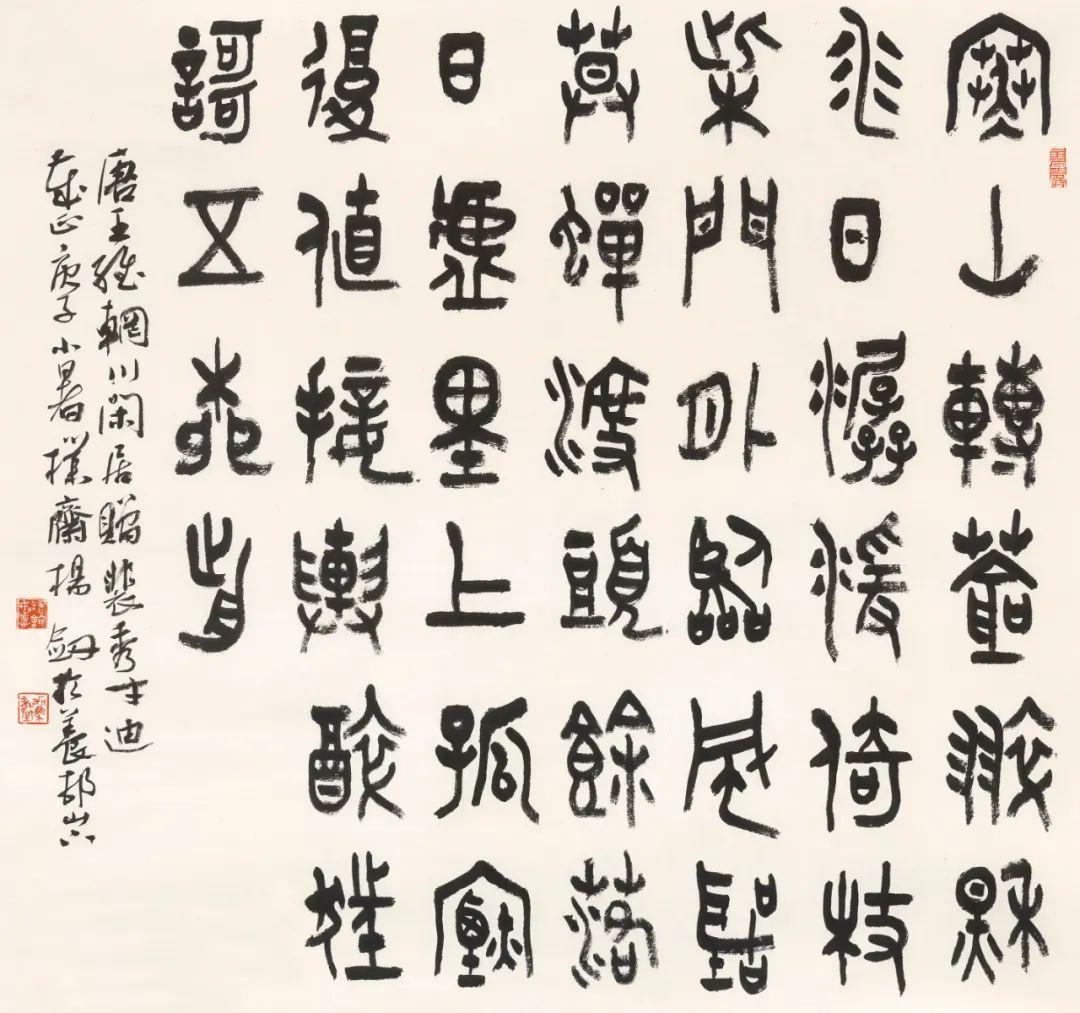 寒山轉蒼翠秋
水日潺湲倚杖
柴門外臨風聽
莫蟬渡頭餘落
日虛里上孤煙
復值接輿醉狂
謌五柳歬
唐王維輞川閑居贈裴秀才迪
歲在庚子小暑樸齋楊劍於養邨